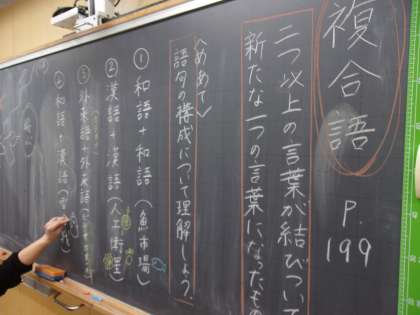 複合語 P.199
二つ以上の言葉が結びついて
新たな一つの言葉になったもの
〈めあて〉
語句の構成について理解しよう。
① 和語+和語(魚市場)
② 漢語+漢語(人工衛星)
③ 外来語+外来語(
④ 和語+漢語(